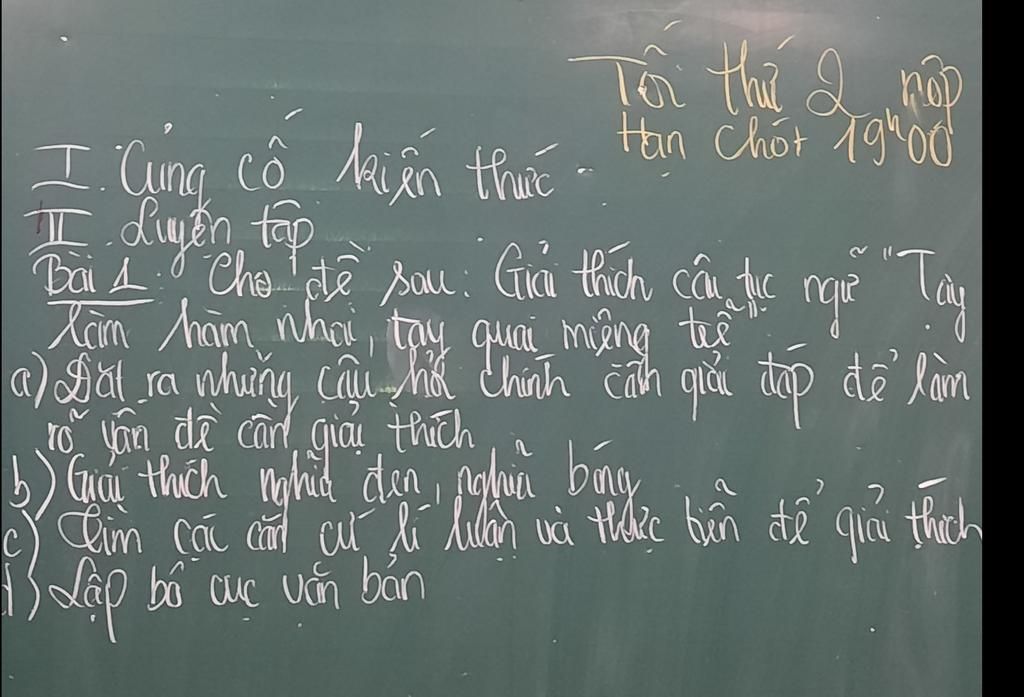 Tối thứ 2 nộp
Hạn chót 19h00
I. Củng cố kiến thức
II. Luyện tập
Bài 1: Cho đề sau: Giải thích câu tục ngữ "Tay
làm hàm nhai, tay quai miệng trễ".
a) Đặt ra những câu hỏi chính cần giải đáp để làm
rõ vấn đề cần giải thích
b) Giải thích nghĩa đen, nghĩa bóng
c) Tìm các căn cứ lí luận và thực tiễn để giải thích
d) Lập bố cục văn bản